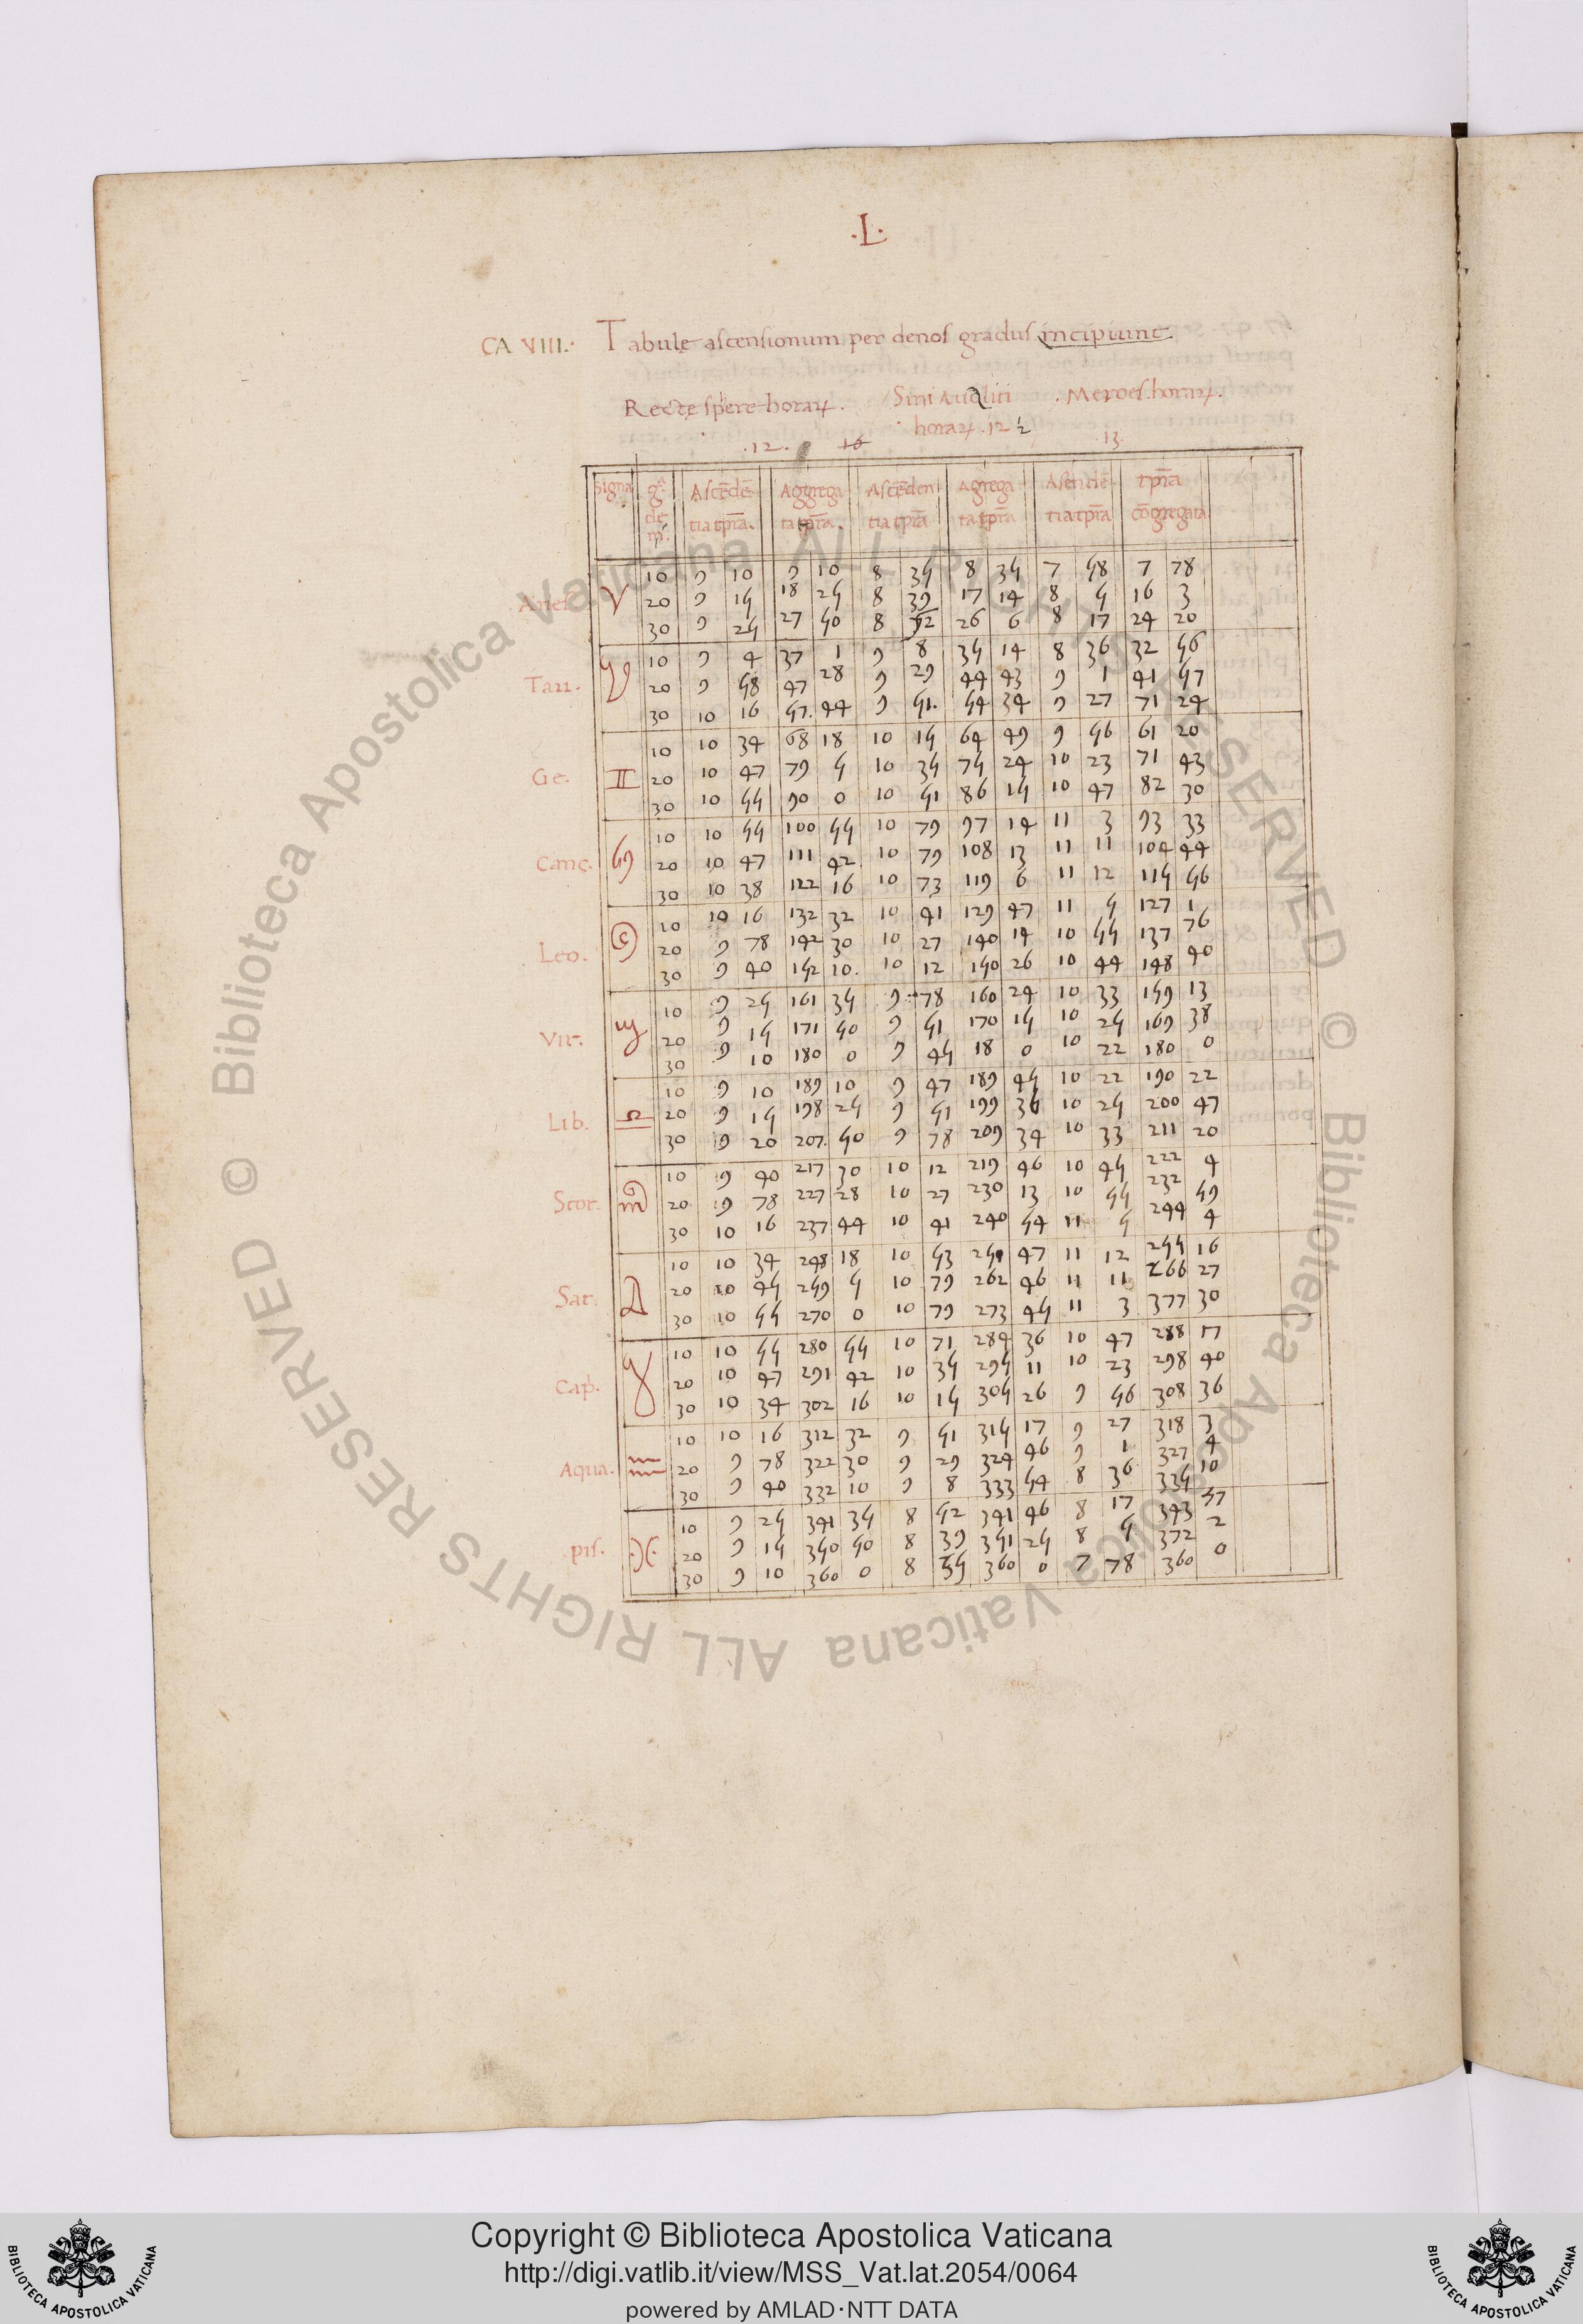 ·L·
CA VIII· Tabulę ascensionum per denos gradus incipiunt
Rectę spere horaꝝ. Sini Avaliti . Meroes. horaꝝ.
horaꝝ .12 ½
.12. 16 13
Signa Ascēdē Aggrega Ascēden Agrega Asendē tp̄ra
tia tp̄ra. ta tp̄ra. tia tp̄ra ta tp̄ra tia tp̄ra cōgregata
10 9 10 9 10 8 35 8 35 7 58 7 78
20 9 15 18 25 8 39 17 14 8 5 16 3
30 9 25 27 50 8 52 26 6 8 17 24 20
Tau. 10 9 4 37 1 9 8 35 14 8 36 32 56
20 9 58 47 28 9 29 44 43 9 1 41 57
30 10 16 57. 44 9 51. 54 34 9 27 71 24
Ge. II 10 10 34 68 18 10 15 64 49 9 56 61 20
20 10 47 79 5 10 35 75 24 10 23 71 43
30 10 55 90 0 10 51 86 15 10 47 82 30
Canc. 10 10 55 100 55 10 79 97 14 11 3 93 33
20 10 47 111 42 10 79 108 13 11 11 104 44
30 10 38 122 16 10 73 119 6 11 12 115 56
Leo. 10 10 16 132 32 10 41 129 47 11 5 127 1
20 9 78 142 30 10 27 140 14 10 55 137 76
30 9 40 152 10. 10 12 150 26 10 44 148 40
Vir. 10 9 25 161 35 9 78 160 24 10 33 159 13
20 9 15 171 50 9 51 170 15 10 25 169 38
30 9 10 180 0 9 45 18 0 10 22 180 0
Lib. 10 9 10 189 10 9 47 189 45 10 22 190 22
20 9 15 198 25 9 51 199 36 10 25 200 47
30 9 20 207. 50 9 78 209 34 10 33 211 20
Scor. 10 9 40 217 30 10 12 219 46 10 45 222 4
20 9 78 227 28 10 27 230 13 10 55 232 59
30 10 16 237 44 10 41 240 54 11 5 244 4
Sat. 10 10 34 248 18 10 53 251 47 11 12 255 16
20 10 45 259 5 10 79 262 46 11 11 266 27
30 10 55 270 0 10 79 273 45 11 3 377 30
Cap. 10 10 55 280 55 10 71 284 36 10 47 288 17
20 10 47 291 42 10 35 295 11 10 23 298 40
30 10 34 302 16 10 15 305 26 9 56 308 36
Aqua. 10 10 16 312 32 9 51 315 17 9 27 318 3
20 9 78 322 30 9 29 324 46 9 1 327 4
30 9 40 332 10 9 8 333 54 8 36 335 10
pis. 10 9 25 341 35 8 52 341 46 8 17 343 57
20 9 15 350 50 8 39 351 25 8 5 372 2
30 9 10 360 0 8 35 360 0 7 78 360 0
© Biblioteca Apostolica Vaticana ALL RIGHTS RESERVED © Biblioteca Apostolica Vaticana ALL RIGHTS RESERVED
Copyright © Biblioteca Apostolica Vaticana
http://digi.vatlib.it/view/MSS_Vat.lat.2054/0064
powered by AMLAD·NTT DATA
BIBLIOTECA APOSTOLICA VATICANA
BIBLIOTECA APOSTOLICA VATICANA